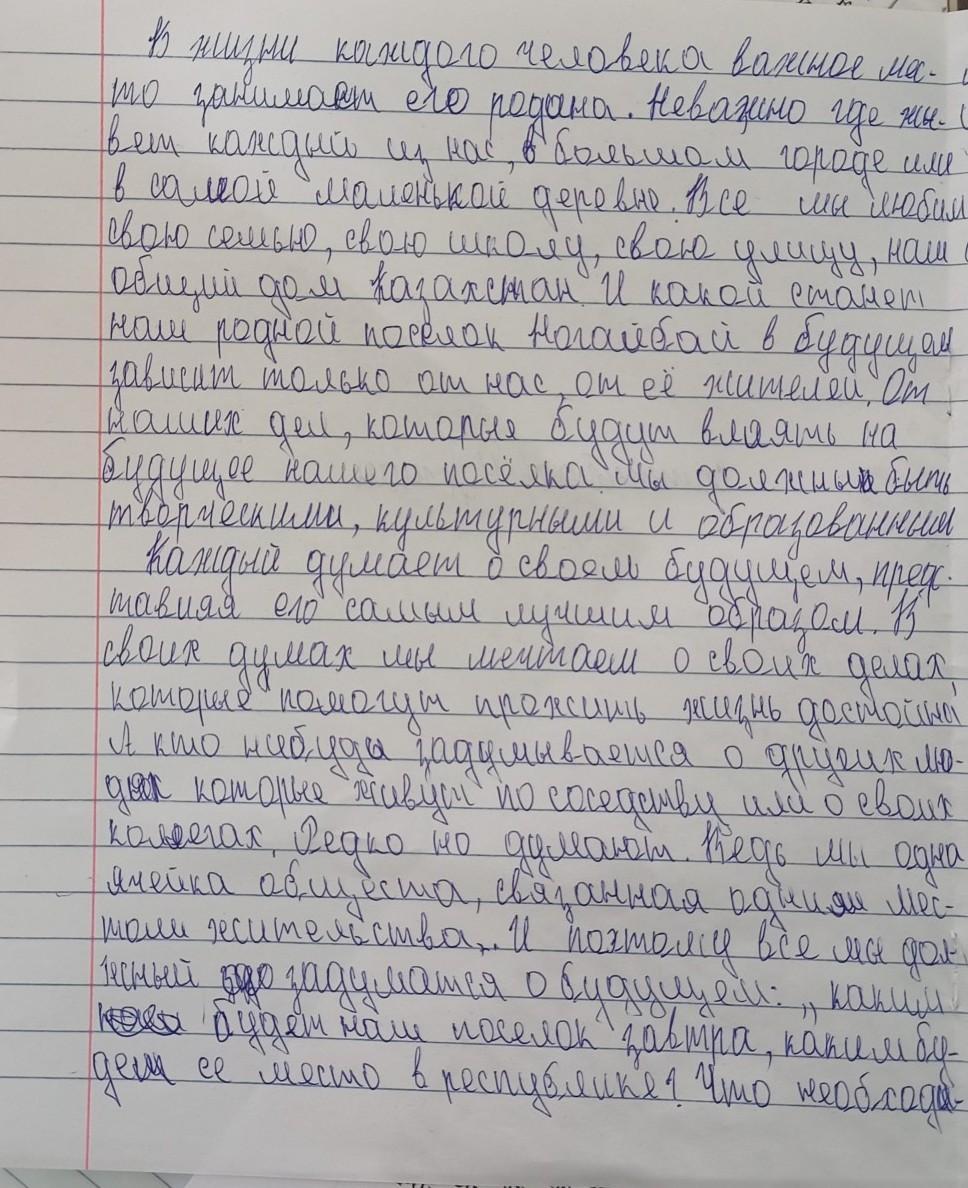 В жизни каждого человека важное мес-
то занимает его родина. Неважно где жи-
вет каждый из нас, в большом городе или
в самой маленькой деревне. Все мы любим
свою семью, свою школу, свою улицу, наш
общий дом Казахстан. И какой станет
наш родной посёлок Ногайбай в будущем
зависит только от нас, от её жителей. От
наших дел, которые будут влиять на
будущее нашего посёлка. Мы должны быть
творческими, культурными и образованным
Каждый думает о своем будущем, предс-
тавляя его самым лучшим образом. В
своих думах мы мечтаем о своих делах,
которые помогут прожить жизнь достойна
А кто нибудь задумывается о других лю-
дях которые живут по соседству или о своих
коллегах. Редко но думают. Ведь мы одна
ячейка общеста, связанная одним мес-
том жительства,. И поэтому все мы дол-
жный задуматся о будущем: „каким
будет наш поселок завтра, каким бу-
дет ее место в республике? Что необходи-